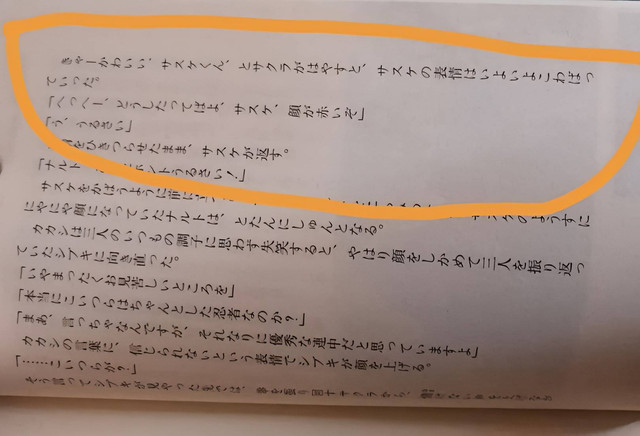 きゃーかわいい、サスケくん、とサクラがはやすと、サスケの表情はいよいよこわばっ
ていった。
「へっへー、どうしたってばよ、サスケ、顔が赤いぞ」
「う、うるさい」
をひきつらせたまま、サスケが返す。
「ナルト ホントうるさい！」
サスケをかばうように前に
にやにや顔になっていたナルトは、とたんにしゅんとなる。
カカシは三人のいつもの調子に思わず失笑すると、やはり顔をしかめて三人を振り返っ
ていたシブキに向き直った。
「いやまったくお見苦しいところを」
「本当にこいつらはちゃんとした忍者なのか？」
「まあ、言っちゃなんですが、それなりに優秀な連中だと思っていますよ」
カカシの言葉に、信じられないという表情でシブキが顔を上げる。
「……こいつらが？」
そう言ってシブキが見やった先では、拳を振り回すサクラやら、